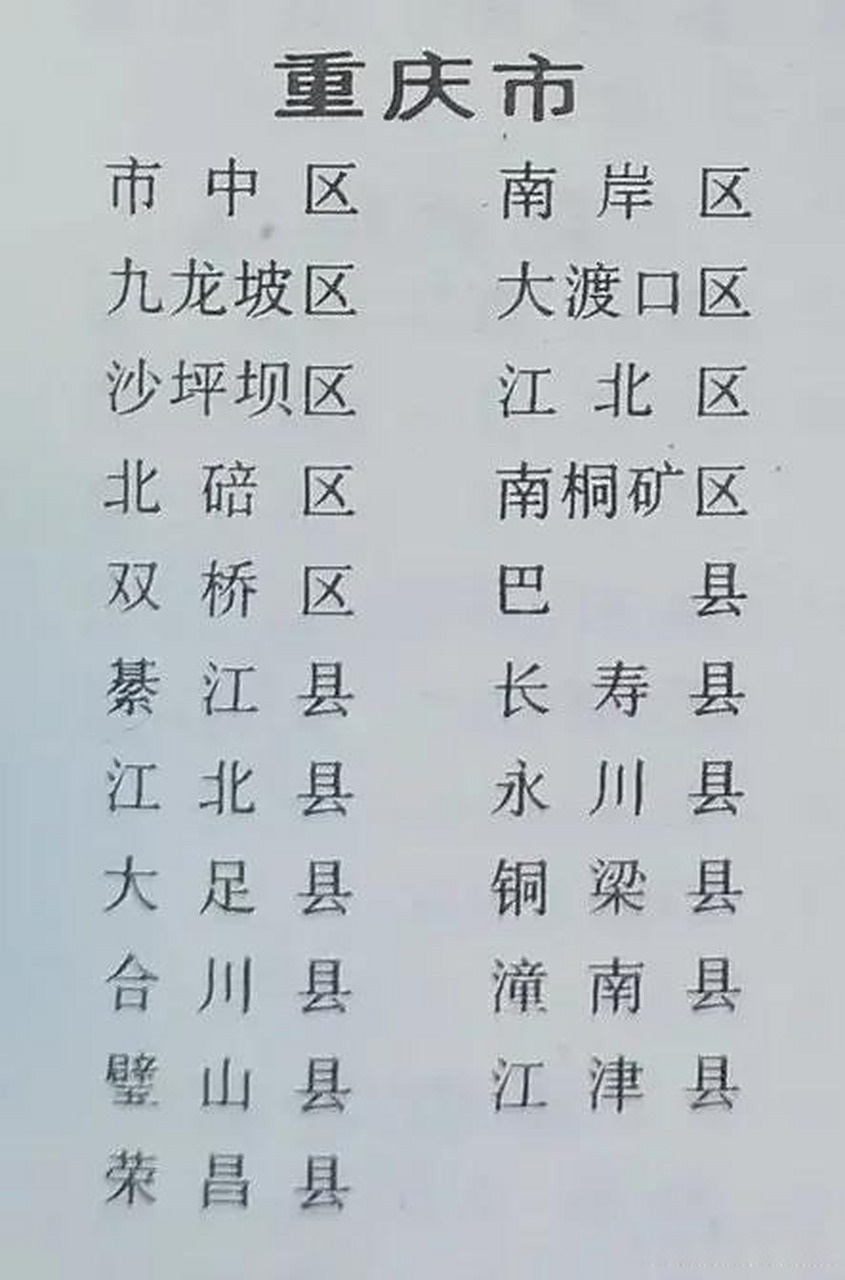 重庆市
市中区 南岸区
九龙坡区 大渡口区
沙坪坝区 江北区
北碚区 南桐矿区
双桥区 巴县
綦江县 长寿县
江北县 永川县
大足县 铜梁县
合川县 潼南县
璧山县 江津县
荣昌县